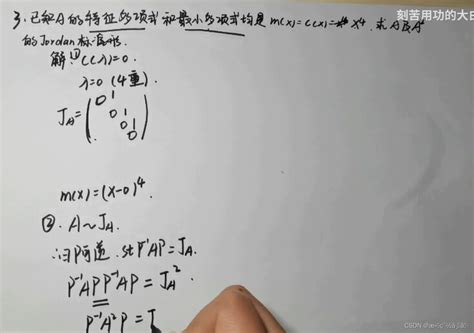 3. 已知A的特征多项式和最小多项式均是 m(x)=c(x)=x⁴, 求A及A²
的Jordan标准形.
刻苦用功的大白
解: ① c(λ)=0.
λ=0 (4重).
J_A = ( 0 1
0 1
0 1
0 )
m(x)=(x-0)⁴.
②. A~J_A.
∴∃P可逆. st P⁻¹AP=J_A.
P⁻¹APP⁻¹AP = J_A²
P⁻¹A²P = J